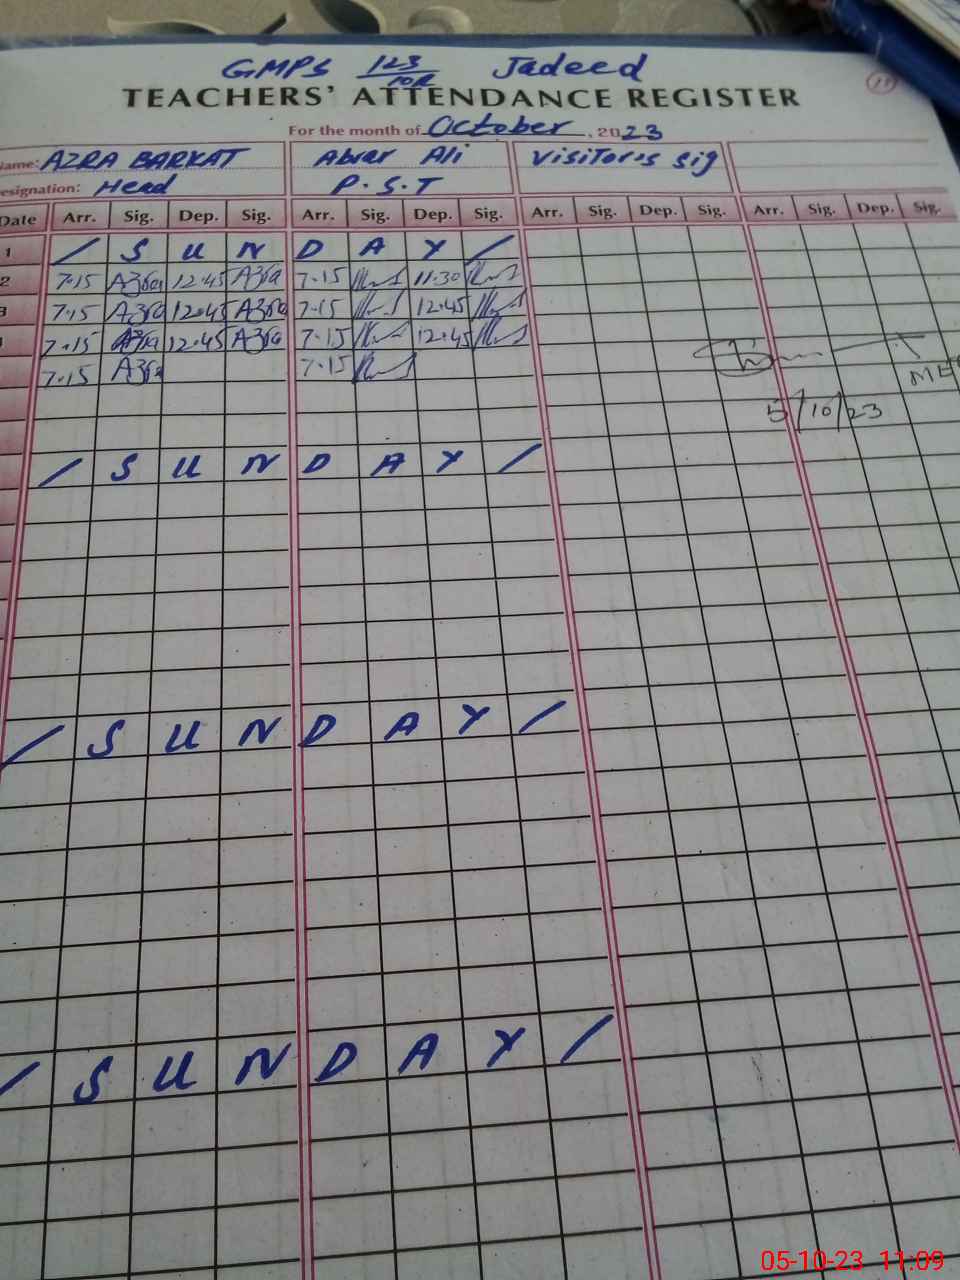 GMPS 123/10R Jadeed
TEACHERS' ATTENDANCE REGISTER
For the month of October, 2023
ame: AZRA BARKAT Abrar Ali Visitor's sig
esignation: Head P.S.T
Date Arr. Sig. Dep. Sig. Arr. Sig. Dep. Sig. Arr. Sig. Dep. Sig. Arr. Sig. Dep. Sig.
1 / S U N D A Y /
2 7.15 Azra 12.45 Azra 7.15 11.30
3 7.15 Azra 12.45 Azra 7.15 12.45
7.15 Azra 12.45 Azra 7.15 12.45
7.15 Azra 7.15
5/10/23
/ S U N D A Y /
/ S U N D A Y /
/ S U N D A Y /
05-10-23 11:09